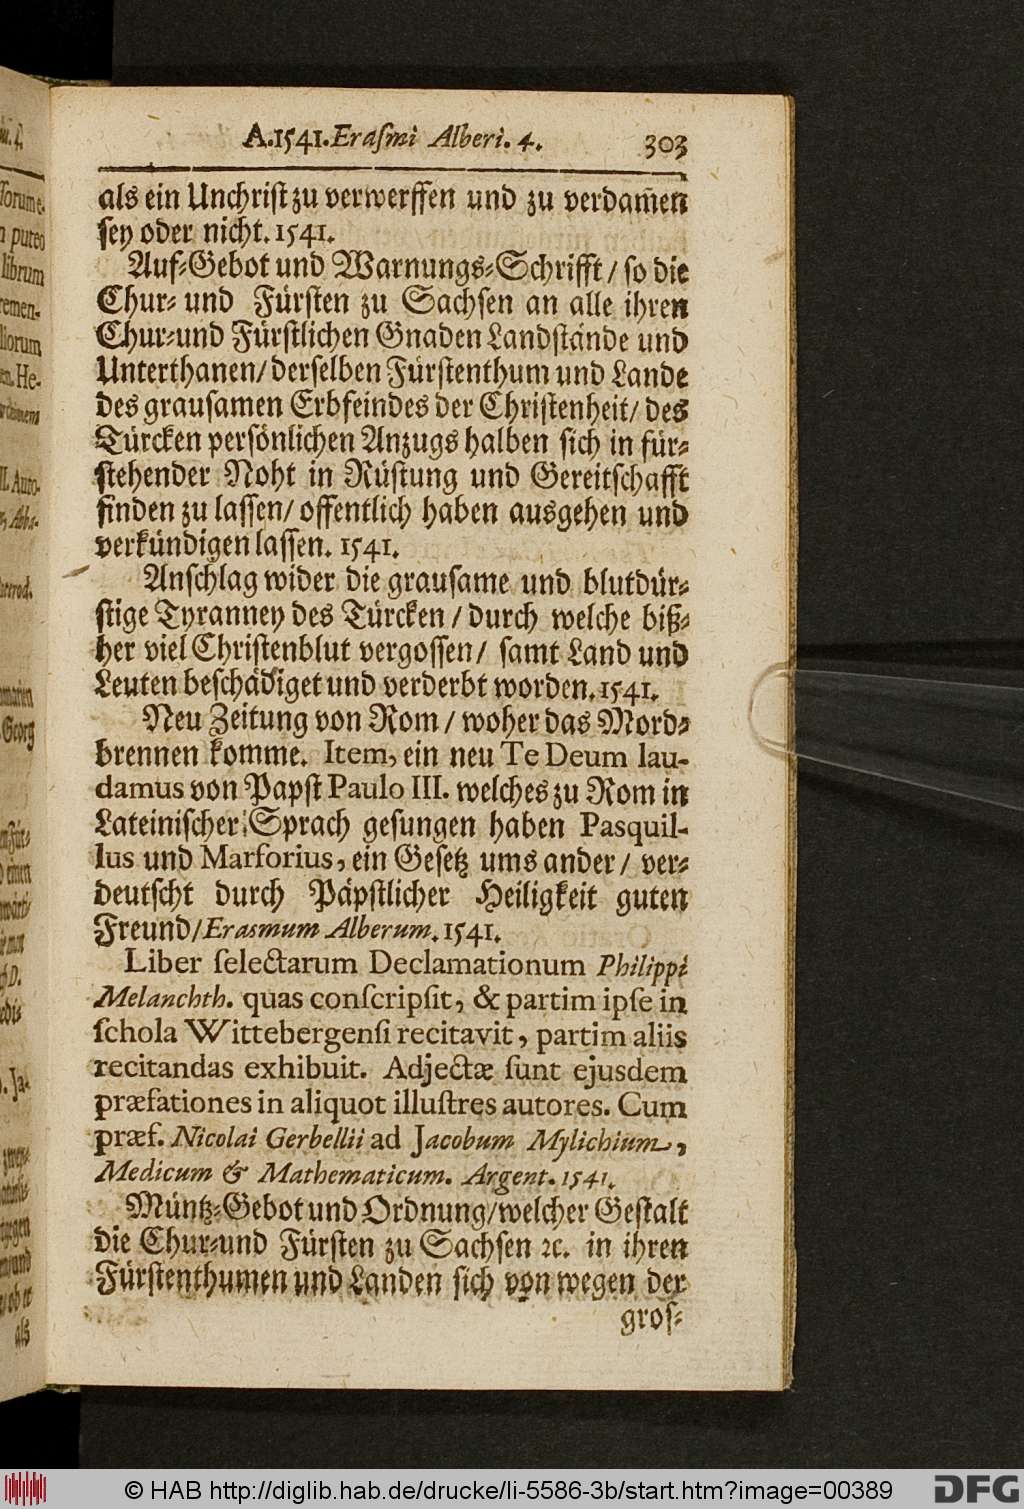 A. 1541. Eraſmi Alberi. 4. 303
als ein Unchriſt zu verwerffen und zu verdam̃en
ſey oder nicht. 1541.
Auf-Gebot und Warnungs-Schrifft / ſo die
Chur- und Fürſten zu Sachſen an alle ihren
Chur-und Fürſtlichen Gnaden Landſtände und
Unterthanen/ derſelben Fürſtenthum und Lande
des grauſamen Erbfeindes der Chriſtenheit/ des
Türcken perſönlichen Anzugs halben ſich in für-
ſtehender Noht in Rüſtung und Gereitſchafft
finden zu laſſen/ offentlich haben ausgehen und
verkündigen laſſen. 1541.
Anſchlag wider die grauſame und blutdür-
ſtige Tyranney des Türcken / durch welche biß-
her viel Chriſtenblut vergoſſen/ ſamt Land und
Leuten beſchädiget und verderbt worden. 1541.
Neu Zeitung von Rom / woher das Mord-
brennen komme. Item, ein neu Te Deum lau-
damus von Papſt Paulo III. welches zu Rom in
Lateiniſcher Sprach geſungen haben Pasquil-
lus und Marforius, ein Geſetz ums ander / ver-
deutſcht durch Päpſtlicher Heiligkeit guten
Freund/ Erasmum Alberum. 1541.
Liber ſelectarum Declamationum Philippi
Melanchth. quas conſcripſit, & partim ipſe in
ſchola Wittebergenſi recitavit, partim aliis
recitandas exhibuit. Adjectæ ſunt ejusdem
præfationes in aliquot illuſtres autores. Cum
præf. Nicolai Gerbellii ad Jacobum Mylichium,
Medicum & Mathematicum. Argent. 1541.
Müntz-Gebot und Ordnung/welcher Geſtalt
die Chur-und Fürſten zu Sachſen ꝛc. in ihren
Fürſtenthumen und Landen ſich von wegen der
groſ-
© HAB http://diglib.hab.de/drucke/li-5586-3b/start.htm?image=00389
DFG